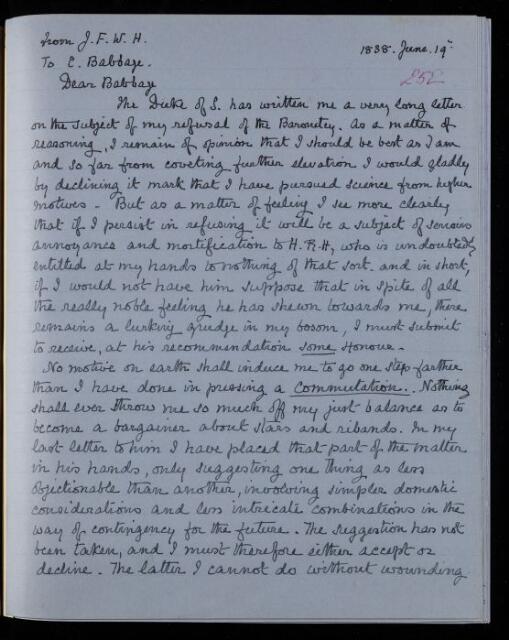 from J. F. W. H.
1838. June. 19th
To C. Babbage.
252
Dear Babbage
The Duke of S. has written me a very long letter
on the subject of my refusal of the Baronetcy. As a matter of
reasoning, I remain of opinion that I should be best as I am
and so far from coveting further elevation I would gladly
by declining it mark that I have pursued science from higher
motives - But as a matter of feeling I see more clearly
that if I persist in refusing it will be a subject of serious
annoyance and mortification to H. R. H, who is undoubtedly
entitled at my hands to nothing of that sort. and in short,
if I would not have him suppose that in spite of all
the really noble feeling he has shewn towards me, there
remains a lurking grudge in my bosom, I must submit
to receive, at his recommendation some Honour.
No motive on earth shall induce me to go one step farther
than I have done in pressing a Commutation.. Nothing
shall ever throw me so much off my just balance as to
become a bargainer about stars and ribands. In my
last letter to him I have placed that part of the matter
in his hands, only suggesting one thing as less
objectionable than another, involving simpler domestic
considerations and less intricate combinations in the
way of contingency for the future. The suggestion has not
been taken, and I must therefore either accept or
decline. The latter I cannot do without wounding